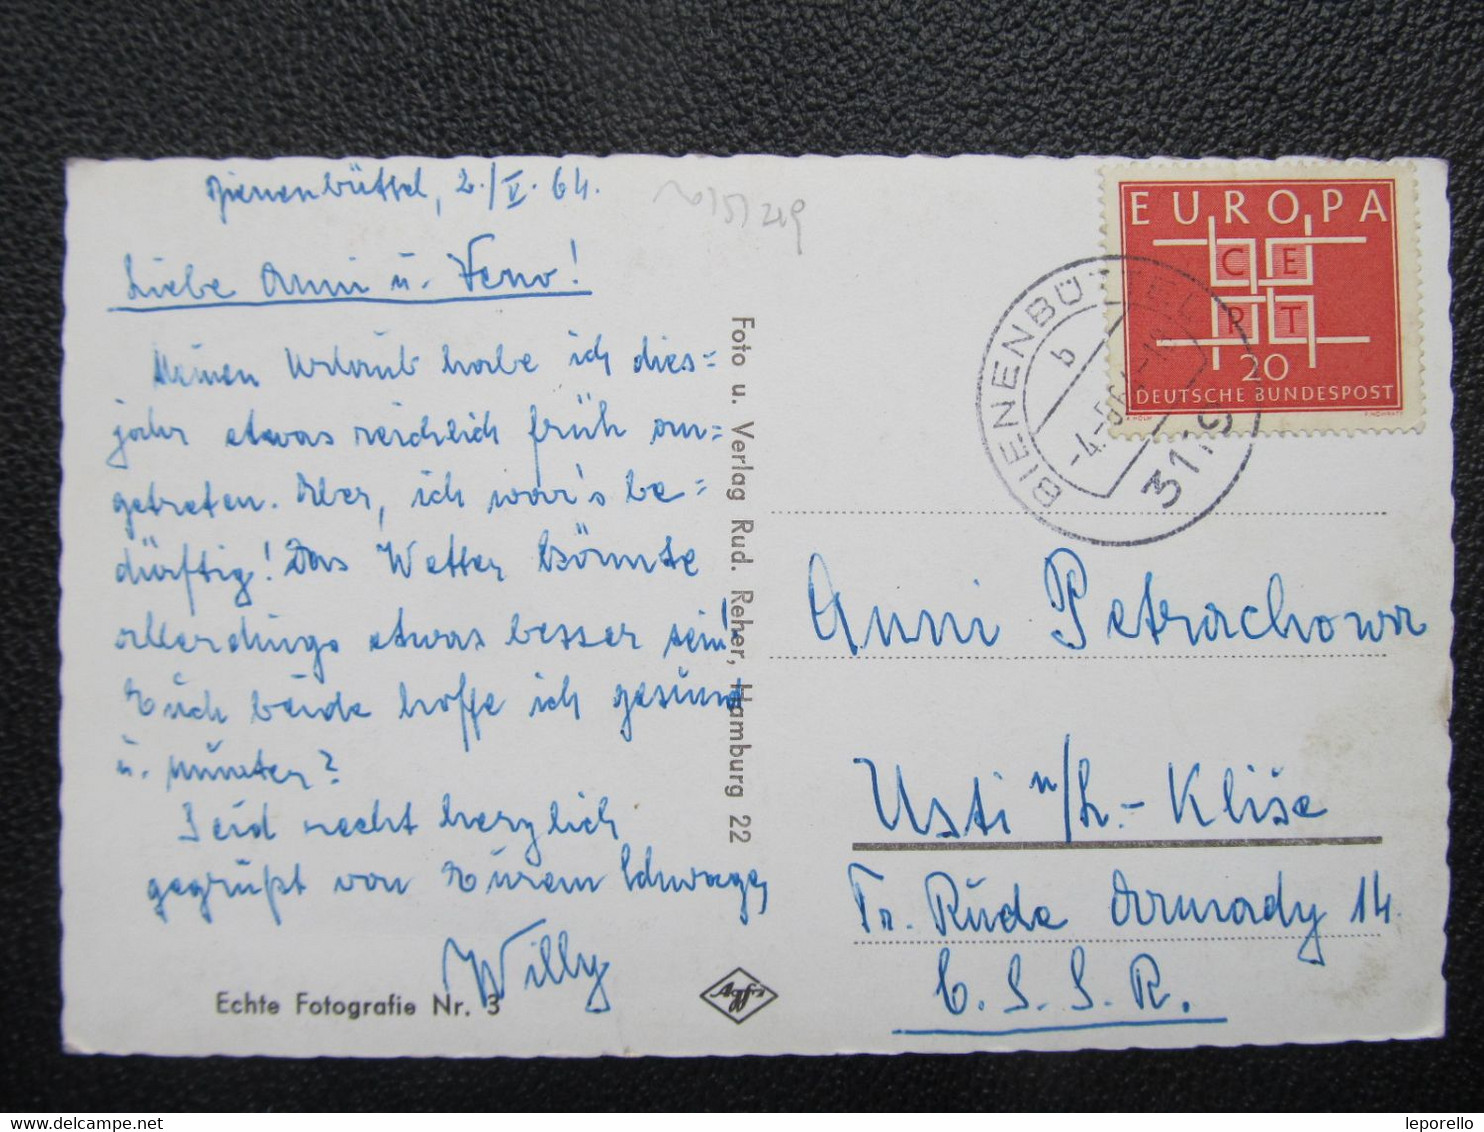 Bienenbüttel, 2./V. 64.
Liebe Anni u. Veno!
Meinen Urlaub habe ich dies=
jahr etwas reichlich früh an=
getreten. Aber, ich war's be=
dürftig! Das Wetter könnte
allerdings etwas besser sein!
Euch beide hoffe ich gesund
u. munter?
Seid recht herzlich
gegrüßt von Eurem Schwager
Willy
Echte Fotografie Nr. 3
Foto u. Verlag Rud. Reher, Hamburg 22
Agfa
EUROPA
CE
PT
20
DEUTSCHE BUNDESPOST
BIENENBÜTTEL
b
Anni Petrachowa
Usti n/L.- Kliše
Tr. Rude Armady 14.
C.S.S.R.
leporello